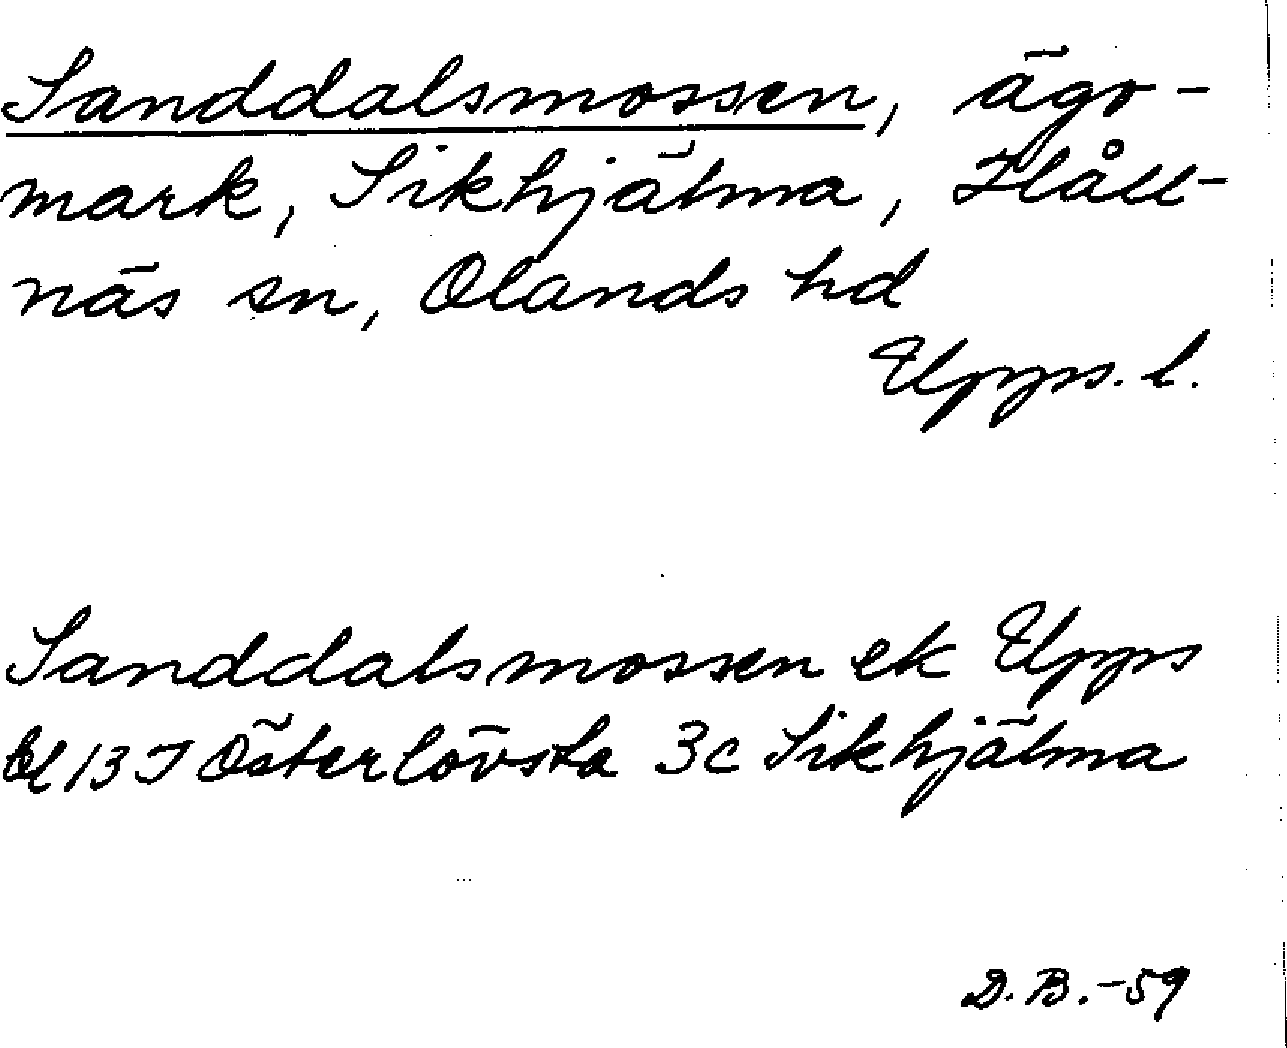 Sanddalsmossen, ägo-
mark, Sikhjälma, Hållnäs
näs sn, Olands hd
Upps. l.
Sanddalsmossen ek Upps
bl 13 I Österlövsta 3c Sikhjälma
D. B. -59